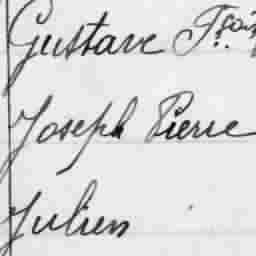 Gustave Fçois
Joseph Pierre
Julien